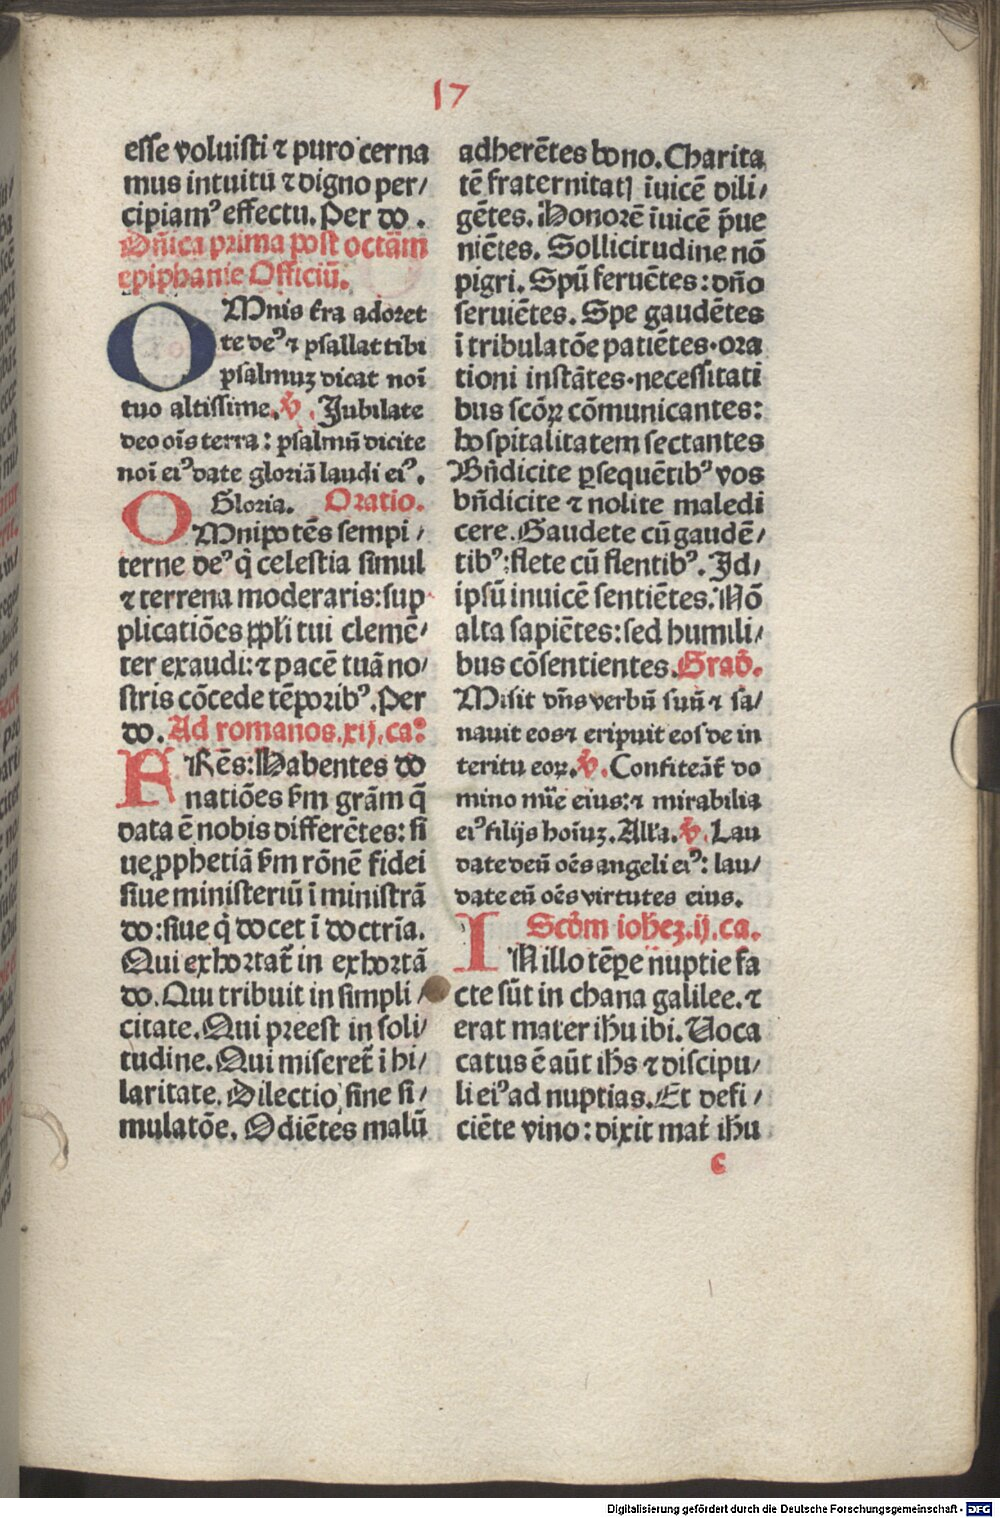 17
esse voluisti ⁊ puro cerna
mus intuitu ⁊ digno per/
cipiamꝰ effectu. Per do .
Dn̄ica prima post octam̄
epiphanie Officiū.
OMnis tr̄a adoret
te deꝰ ⁊ psallat tibi
psalmuꝫ dicat noī
tuo altissime. ꝟ. Jubilate
deo oīs terra: psalmū dicite
noī eiꝰ date gloriā laudi eiꝰ.
Gloria. Oratio.
OMnipotēs sempi/
terne deꝰ q̇ celestia simul
⁊ terrena moderaris: sup
plicatiōes ppl̄i tui clemē/
ter exaudi: ⁊ pacē tuā no/
stris cōcede tēporibꝰ. Per
do. Ad romanos. xij. ca:
FRēs: Habentes do
natiōes ẜm grām q̄
data ē nobis differētes: si
ue ꝓphetiā ẜm rōnē fidei
siue ministeriū ī ministrā
do: siue q̇ docet ī doctrīa.
Qui exhortat̄ in exhortā
do. Qui tribuit in simpli/
citate. Qui preest in soli/
tudine. Qui miseret̄ ī hi/
laritate. Dilectio sine si/
mulatōe. Odiētes malū
adherētes bono. Charita
tē fraternitatꝭ īuicē dili/
gētes. Honorē īuicē p̄ue
niētes. Sollicitudine nō
pigri. Spū feruētes: dn̄o
seruiētes. Spe gaudētes
ī tribulatōe patiētes. ora
tioni instātes. necessitati
bus sc̄oꝝ cōmunicantes:
hospitalitatem sectantes
Bn̄dicite ꝑsequētibꝰ vos
bn̄dicite ⁊ nolite maledi
cere. Gaudete cū gaudē/
tibꝰ: flete cū flentibꝰ. Jd/
ipsū inuicē sentiētes. Nō
alta sapiētes: sed humili/
bus cōsentientes. Grad̄.
Misit dn̄s verbū suū ⁊ sa/
nauit eos ⁊ eripuit eos de in
teritu eoꝝ. ꝟ. Confiteāt̄ do
mino mīe eius: ⁊ mirabilia
eiꝰ filijs hoīuꝫ. All'a. ꝟ. Lau
date deū oēs angeli eiꝰ: lau/
date eū oēs virtutes eius.
Scd̄m ioh̄eꝫ. ij. ca.
IN illo tēꝑe nuptie fa
cte sūt in chana galilee. ⁊
erat mater ih̄u ibi. Uoca
catus ē aūt ih̄s ⁊ discipu/
li eiꝰ ad nuptias. Et defi/
ciēte vino: dixit mat̄ ih̄u
c
Digitalisierung gefördert durch die Deutsche Forschungsgemeinschaft - DFG